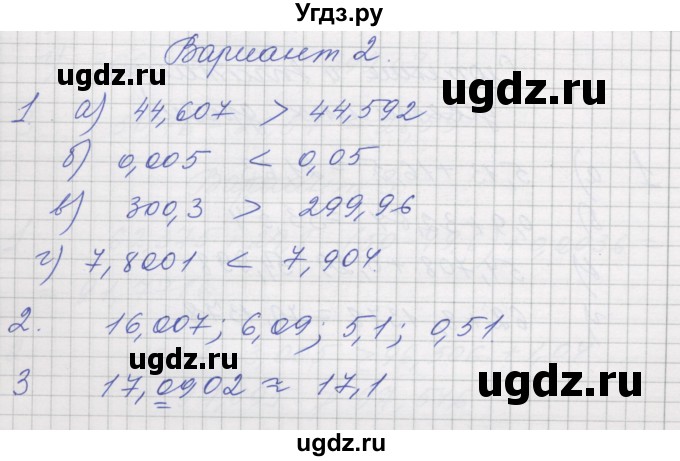 Угдз.ру
Вариант 2.
ugdz.ru ugdz.ru
1. а) 44,607 > 44,592
б) 0,005 < 0,05
в) 300,3 > 299,96
ugdz.ru ugdz.ru
г) 7,8001 < 7,904.
2. 16,007; 6,09; 5,1; 0,51.
ugdz.ru ugdz.ru
3 17,0902 ≈ 17,1
ugdz.ru